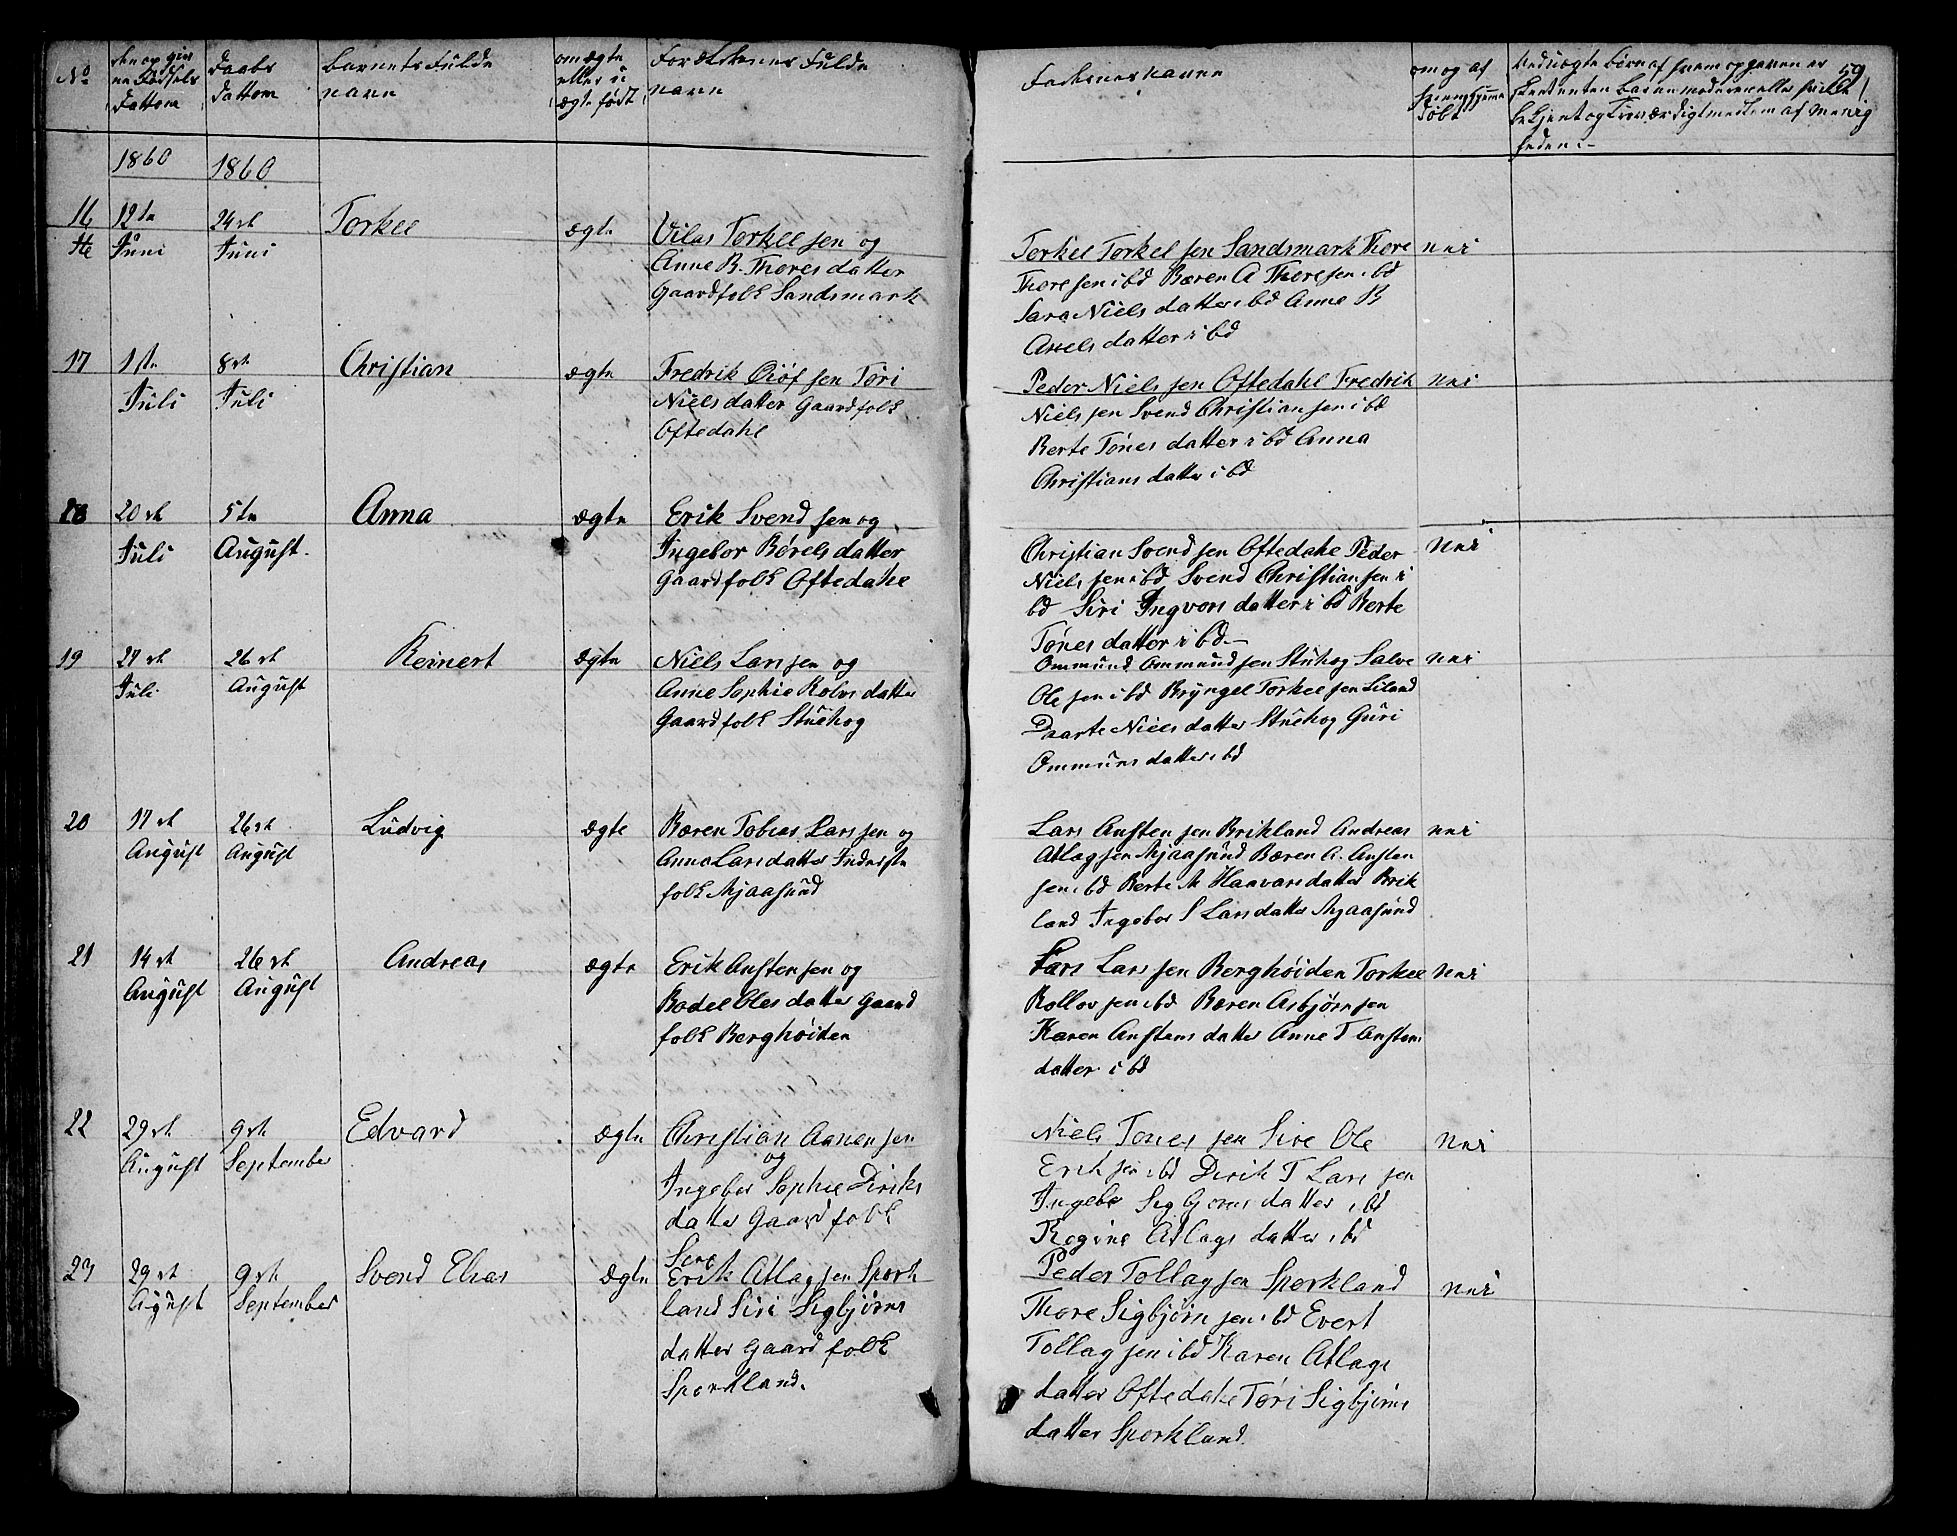 No
den opgiv
ne Fødsels
Dattom
Daabs
Dattom
Barnets Fulde
navn
om ægte
eller u
ægte født
Forældrenes Fulde
navn
Faddernes navne
om og af
hvem hjemme
Døbt
59
1860
1860
16
12te
Juni
24de
Juni
Torkel
ægte
Vilas Torkelsen og
Anne B. Thores datter
Gaardfolk Sandsmark
Torkel Torkelsen Sandsmark Thore
Thoresen ibd Bæren A Thoresen ibd
Sara Niels datter ibd Anne B
Axels datter i bd
nei
17
1ste
Juli
8de
Juli
Christian
ægte
Fredrik Oiofsen Tøri
Niels datter Gaardfolk
Oftedahl
Peder Nielsen Oftedahl Fredrik
Nielsen Svend Christiansen i bd
Berte Tønes datter i bd Anna
Christians datter i bd
nei
18
20de
Juli
5te
August
Anna
ægte
Erik Svendsen og
Ingebor Børels datter
Gaardfolk Oftedahl
Christian Svendsen Oftedahl Peder
Nielsen ibd Svend Christiansen i
bd Siri Ingvors datter i bd Berte
Tønes datter i bd
nei
19
27de
Juli
26de
August
Reinert
ægte
Niels Larsen og
Anne Sophie Rolvs datter
Gaardfolk Stuehog
Ommund Ommundsen Stuhog Salve
Olesen ibd Bryngel Torkelsen Liland
Daarte Niels datter Stuehog Guri
Ommuns datter ibd
nei
20
17de
August
26de
August
Ludvig
ægte
Bæren Tobias Larsen og
Anna Lars datter Inderste
folk Mjaasund
Lars Austensen Brikland Andreas
Atlagsen Mjaasund Bæren A. Austen
sen ibd Berte M Haavars datter Brik
land Ingebor S Lars datter Mjaasund
nei
21
14de
August
26de
August
Andreas
ægte
Erik Austensen og
Bodel Oles datter Gaard
folk Berghøiden
Lars Larsen Berghøiden Torkel
Rollovsen ibd Bæren Asbjørnsen
Karen Austens datter Anne T Austens
datter i bd
nei
22
29de
August
9de
September
Edvard
ægte
Christian Aanensen
og
Ingebor Sophie Diriks
datter Gaardfolk
Sire
Niels Tonessen Sire Ole
Eriksen ibd Dirik T Larsen
Ingebor Sigbjørns datter ibd
Regine Atlags datter ibd
nei
23
29de
August
9de
September
Svend Elias
ægte
Erik Atlagsen Spork
land Siri Sigbjørns
datter Gaardfolk
Sporkland.
Peder Tollagsen Sporkland
Thore Sigbjørnsen ibd Evert
Tollagsen ibd Karen Atlags
datter Oftedahl Tøri Sigbjørns
datter Sporkland.
nei